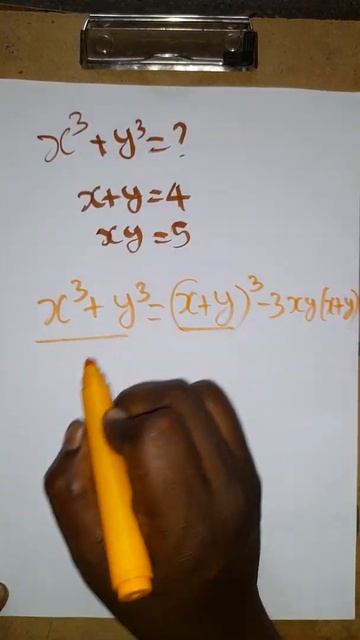 x³+y³=?
x+y=4
xy=5
x³+y³=(x+y)³-3xy(x+y)